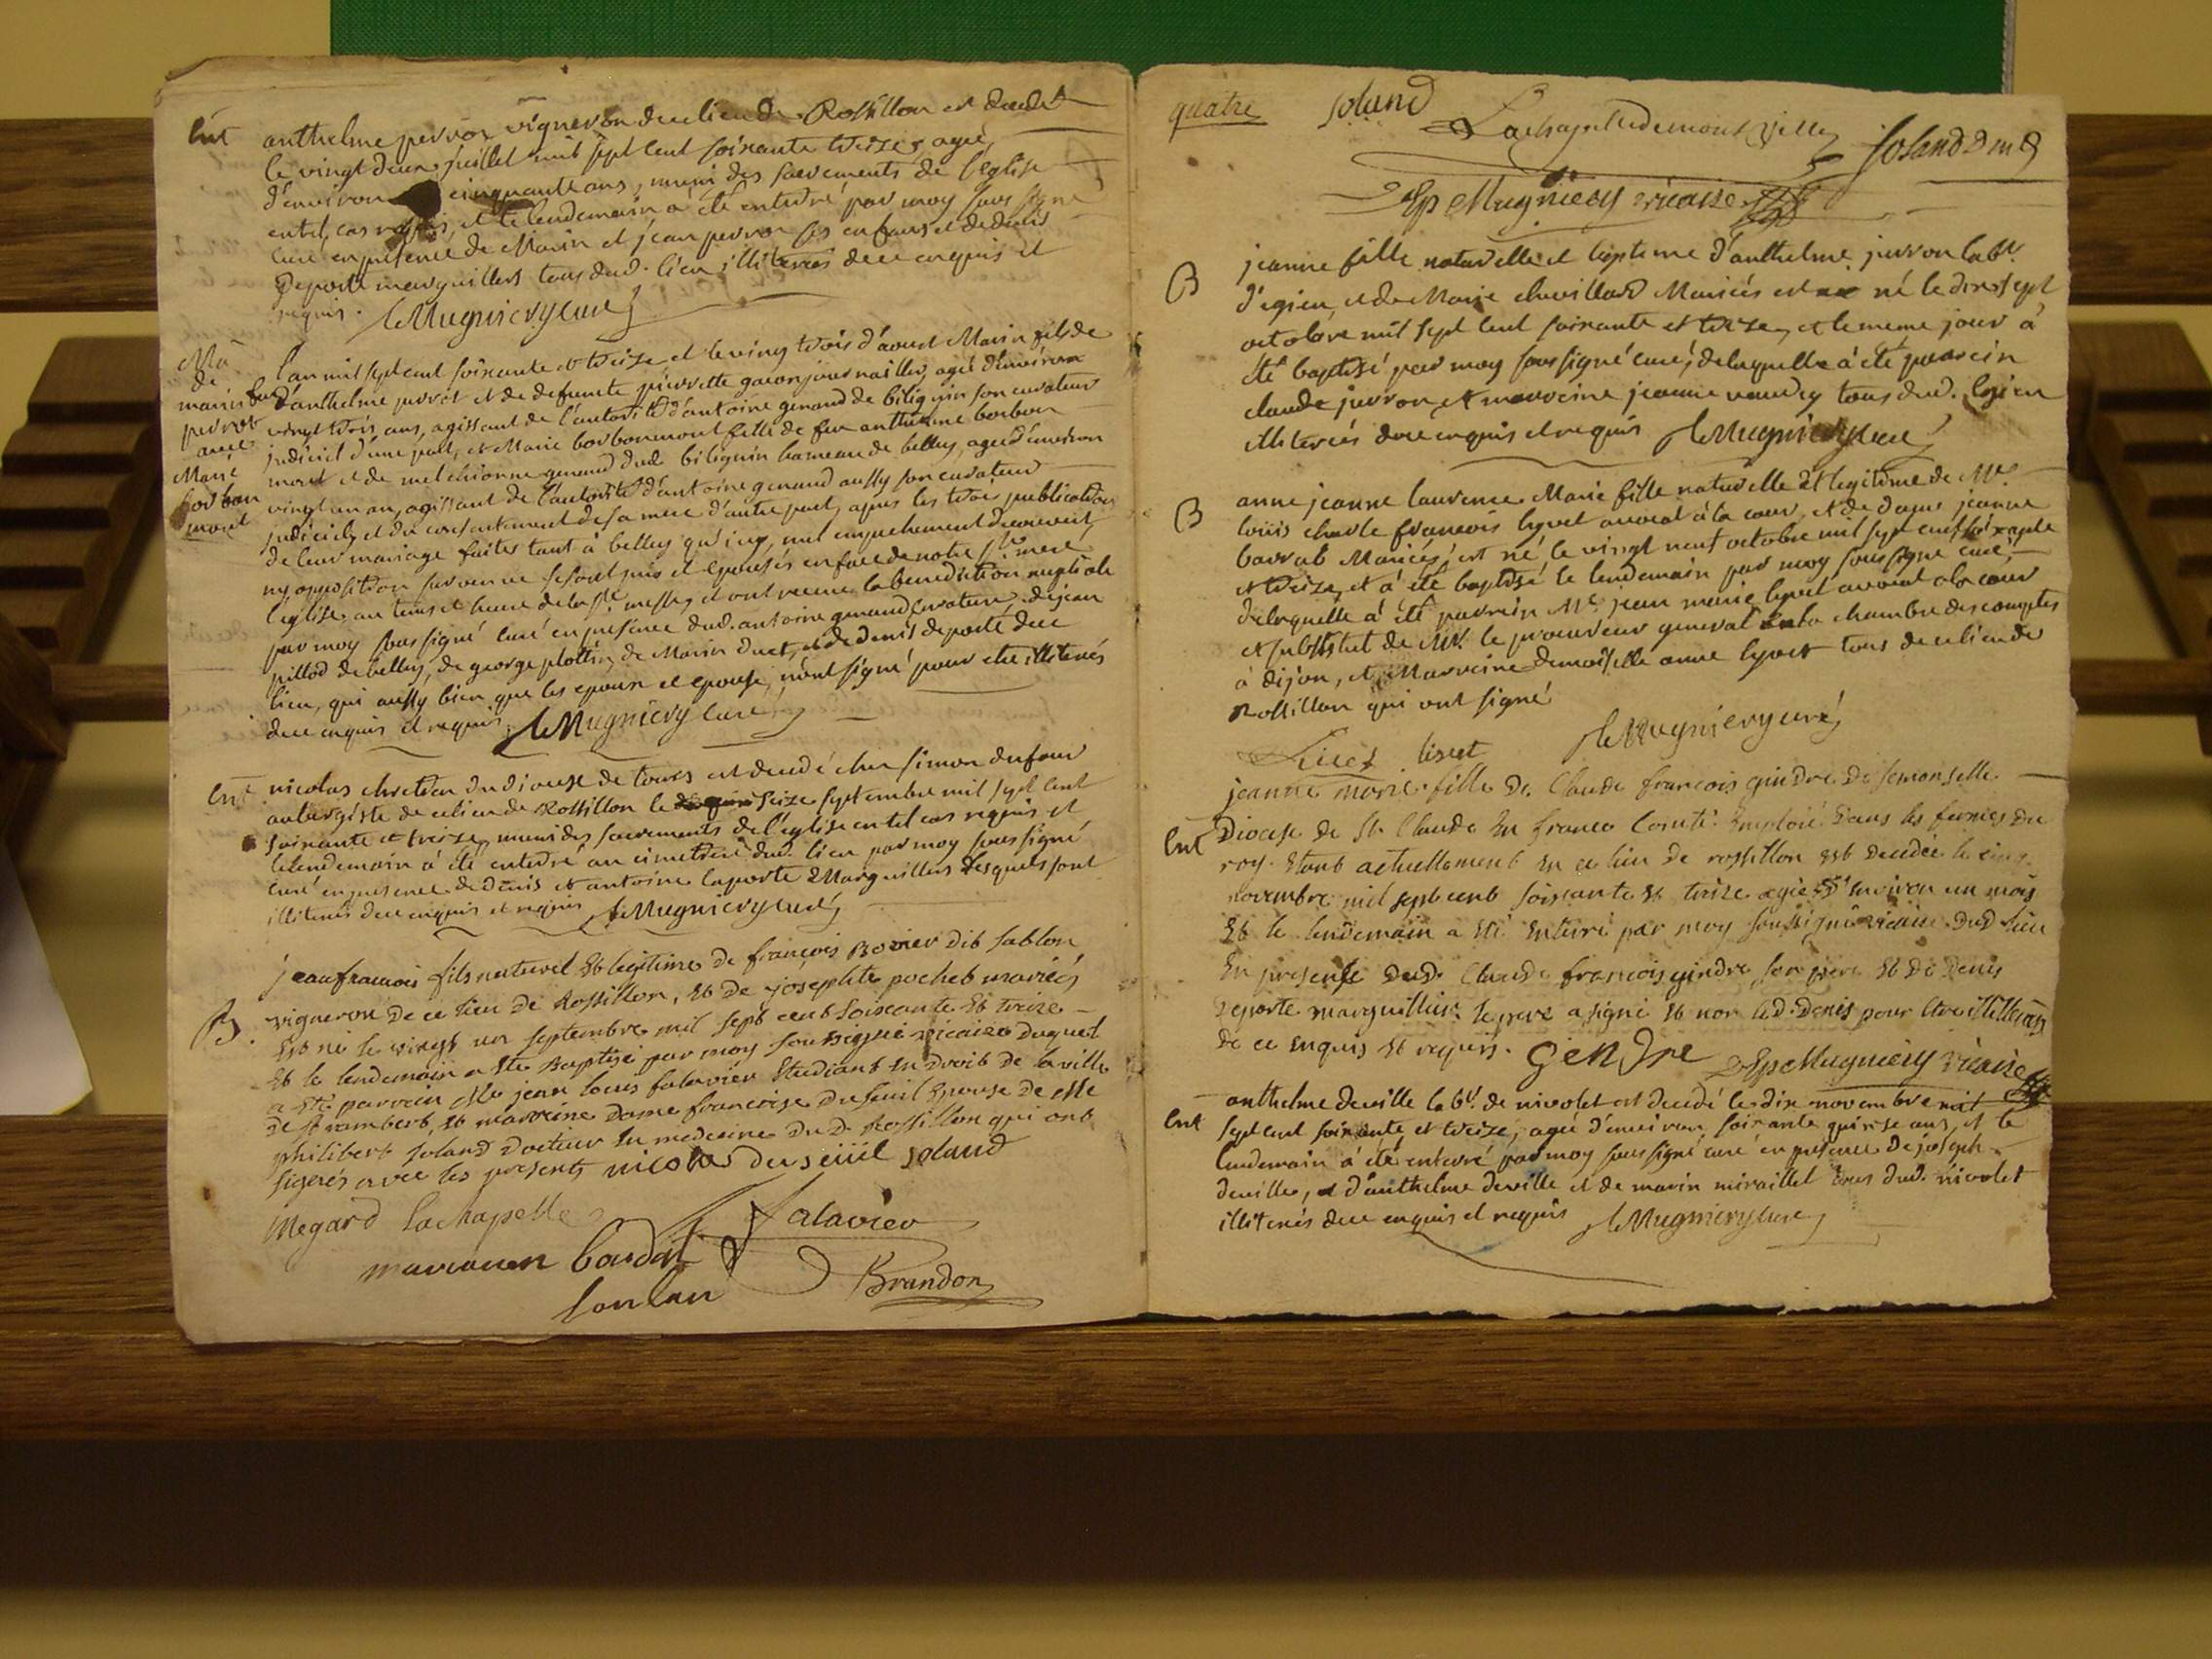 Ent
anthelme perron vigneron de ce lieu de Rossillon est decedé
le vingt deux juillet mil sept cent soixante treize, agé
d'environ cinquante ans, muni des sacrements de l'eglise
en tel cas requis, et le lendemain a été enterré par moy sous signé
curé en presence de Marin et jean perron ses enfans et de denis
Deporte marguilliers tous dud. lieu illiterés de ce enquis et
requis. Mugniery curé
Ma
de
marin
perrot
avec
Marie
borbon
mont
l'an mil sept cent soixante et treize et le vingt trois d'aoust Marin fils de
d'anthelme perrot et de defunte pierrette gacon journaillier, agé d'environ
vingt trois ans, agissant de l'autorité d'antoine genaud de bilignin son curateur
judiciel d'une part, et Marie borbonmont fille de feu anthelme borbon
mont et de melchionne genaud dud. bilignin hameau de belley, agée d'environ
vingt un an, agissant de l'autorité d'antoine genaud aussy son curateur
judiciel, et du consentement de sa mere d'autre part, apres les trois publications
de leur mariage faites tant à belley qu'icy, nul empechement decouvert,
ny opposition survenue se sont pris et epousés en face de notre ste mere
l'eglise au tems et heure de la ste messe, et ont receu la benediction nuptiale
par moy soussigné curé en presence dud. antoine genaud curateur, de jean
pillod de belley, de george plottin, de Marin duet, et de denis deporte de ce
lieu, qui aussy bien que les epoux et epouse, n'ont signé pour etre illiterés
de ce enquis et requis. Mugniery curé
Ent
nicolas chretien du diocese de tours est decedé chez simon dufour
aubergiste de ce lieu de Rossillon le seize septembre mil sept cent
soixante et treize, muni des sacrements de l'eglise en tel cas requis et
le lendemain à été enterré au cimetiere dud. lieu par moy soussigné
curé en presence de denis et antoine laporte Marguilliers lesquels sont
illiterés de ce enquis et requis Mugniery curé
B.
jean francois fils naturel et legitime de françois Bovier dit sablon
vigneron de ce lieu de Rossillon, et de josephte pochet mariés
est né le vingt un septembre mil sept cent soixante et treize
et le lendemain a ete Baptisé par moy soussigné vicaire duquel
a été parrain Me jean louis falavier Etudiant en droit de la ville
de st rambert, et marraine dame francoise du seuil Epouse de Me
philibert soland docteur en medecine du d. Rossillon qui ont
signés avec les presents nicolas du seüil soland
Megard Lachapelle falavier
Brandon
quatre soland Lachapelle demontgilley soland D m
Mugniery vicaire
B
jeanne fille naturelle et legitime d'anthelme perron labr.
d'egieu, et de Marie chevillard Mariés est né le dix sept
octobre mil sept cent soixante et treize, et le meme jour à
été baptisé par moy soussigné curé, de laquelle à été parrein
claude perron et marreine jeanne vaudey tous dud. Egieu
illiterés de ce enquis et requis Mugniery curé
B
anne jeanne laurence Marie fille naturelle et legitime de Mr.
louis charle francois lyvet avocat à la cour, et de dame jeanne
barrat Mariés, est né le vingt neuf octobre mil sept cent soixante
et treize, et à été baptisé le lendemain par moy soussigné curé,
de laquelle à été parrein Mr. jean marie lyvet avocat à la cour
et substitut de Mr. le procureur general en la chambre des comptes
à dijon, et Marreine demoiselle anne lyvet tous de ce lieu de
Rossillon qui ont signé
Mugniery curé
Ent
jeanne marie fille de Claude francois gindre de semonselle
Diocese de St Claude En franco Comté. Emploié Dans les fermes du
roy. Etant actuellement en ce lieu de rossillon est decedée le cinq
novembre mil sept cent soixante et treize agée d'environ un mois
et le lendemain a été enterré par moy soussigné vicaire dud lieu
en presense dud. Claude francois gindre son pere et de denis
Deporte marguillier. le pere a signé et non led. denis pour etre illitteré
de ce enquis et requis. GenDre Mugniery vicaire
Ent
anthelme deville labr. de nivolet est decedé le dix novembre mil
sept cent soixante et treize, agé d'environ soixante quinze ans, et le
lendemain à été enterré par moy soussigné curé en presence de joseph
deville, et d'anthelme deville et de marin miraillet tous dud. nivolet
illiterés de ce enquis et requis Mugniery curé